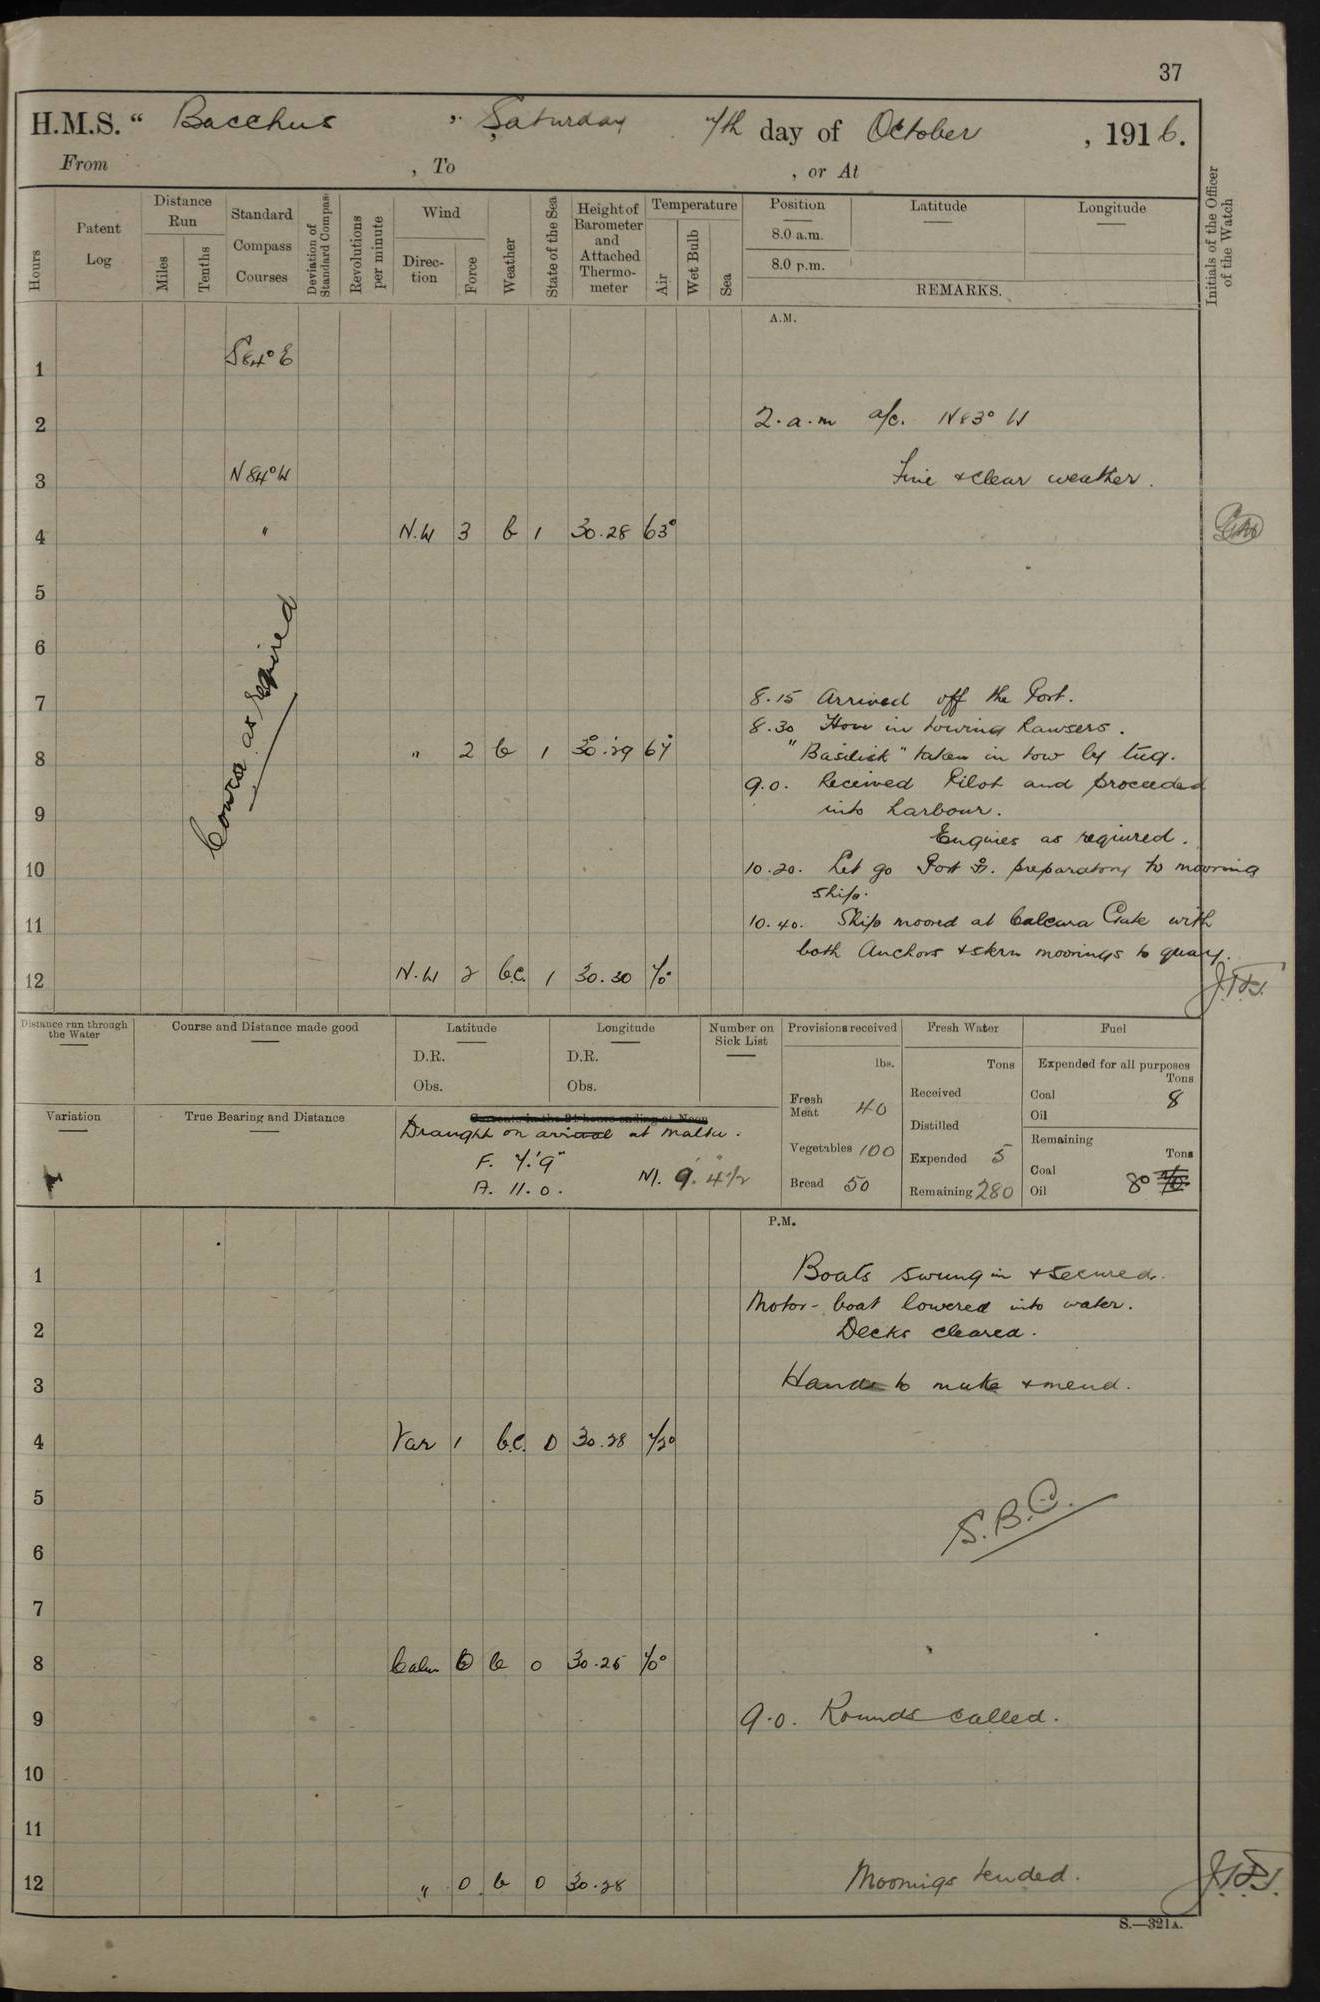 37
H.M.S. " Bacchus ", Saturday 7th day of October, 1916.
From , To , or At
Hours
Patent Log
Distance Run
Miles
Tenths
Standard Compass Courses
Deviation of Standard Compass
Revolutions per minute
Wind
Direction
Force
Weather
State of the Sea
Height of Barometer and Attached Thermometer
Temperature
Air
Wet Bulb
Sea
Position
Latitude
Longitude
8.0 a.m.
8.0 p.m.
REMARKS.
Initials of the Officer of the Watch
A.M.
1 S84°E
2 2.a.m a/c. N83°W
3 N84°W Fine & clear weather.
4 " N.W 3 b 1 30.28 63°
5
6
Course as required
7 8.15 Arrived off the Port.
8.30 Hove in towing hawsers.
8 " 2 b 1 30.29 67° "Basilisk" taken in tow by tug.
9.0. Received Pilot and proceeded
9 into harbour.
Engines as required.
10 10.20. Let go Port Br. preparatory to mooring
ship.
11 10.40. Ship moored at Calcara Gate with
both Anchors & stern moorings to quay.
12 N.W 2 b.c. 1 30.30 70°
Distance run through the Water
Course and Distance made good
Latitude
D.R.
Obs.
Longitude
D.R.
Obs.
Number on Sick List
Provisions received
lbs.
Fresh Meat 40
Vegetables 100
Bread 50
Fresh Water
Tons
Received
Distilled
Expended 5
Remaining 280
Fuel
Expended for all purposes
Tons
Coal 8
Oil
Remaining
Tons
Coal
Oil 80
Variation
True Bearing and Distance
Currents in the 24 hours ending at Noon
Draught on arrival at Malta.
F. 7'.9"
A. 11.0. M. 9'. 4½"
P.M.
1 Boats swung in & secured.
Motor-boat lowered into water.
2 Decks cleared.
3 Hands to make & mend.
4 Var 1 b.c. 0 30.28 72°
5 S.B.C.
6
7
8 Calm 0 b 0 30.26 70°
9 9.0. Rounds called.
10
11
12 " 0 b 0 30.28 Moorings tended.
S.—321A.